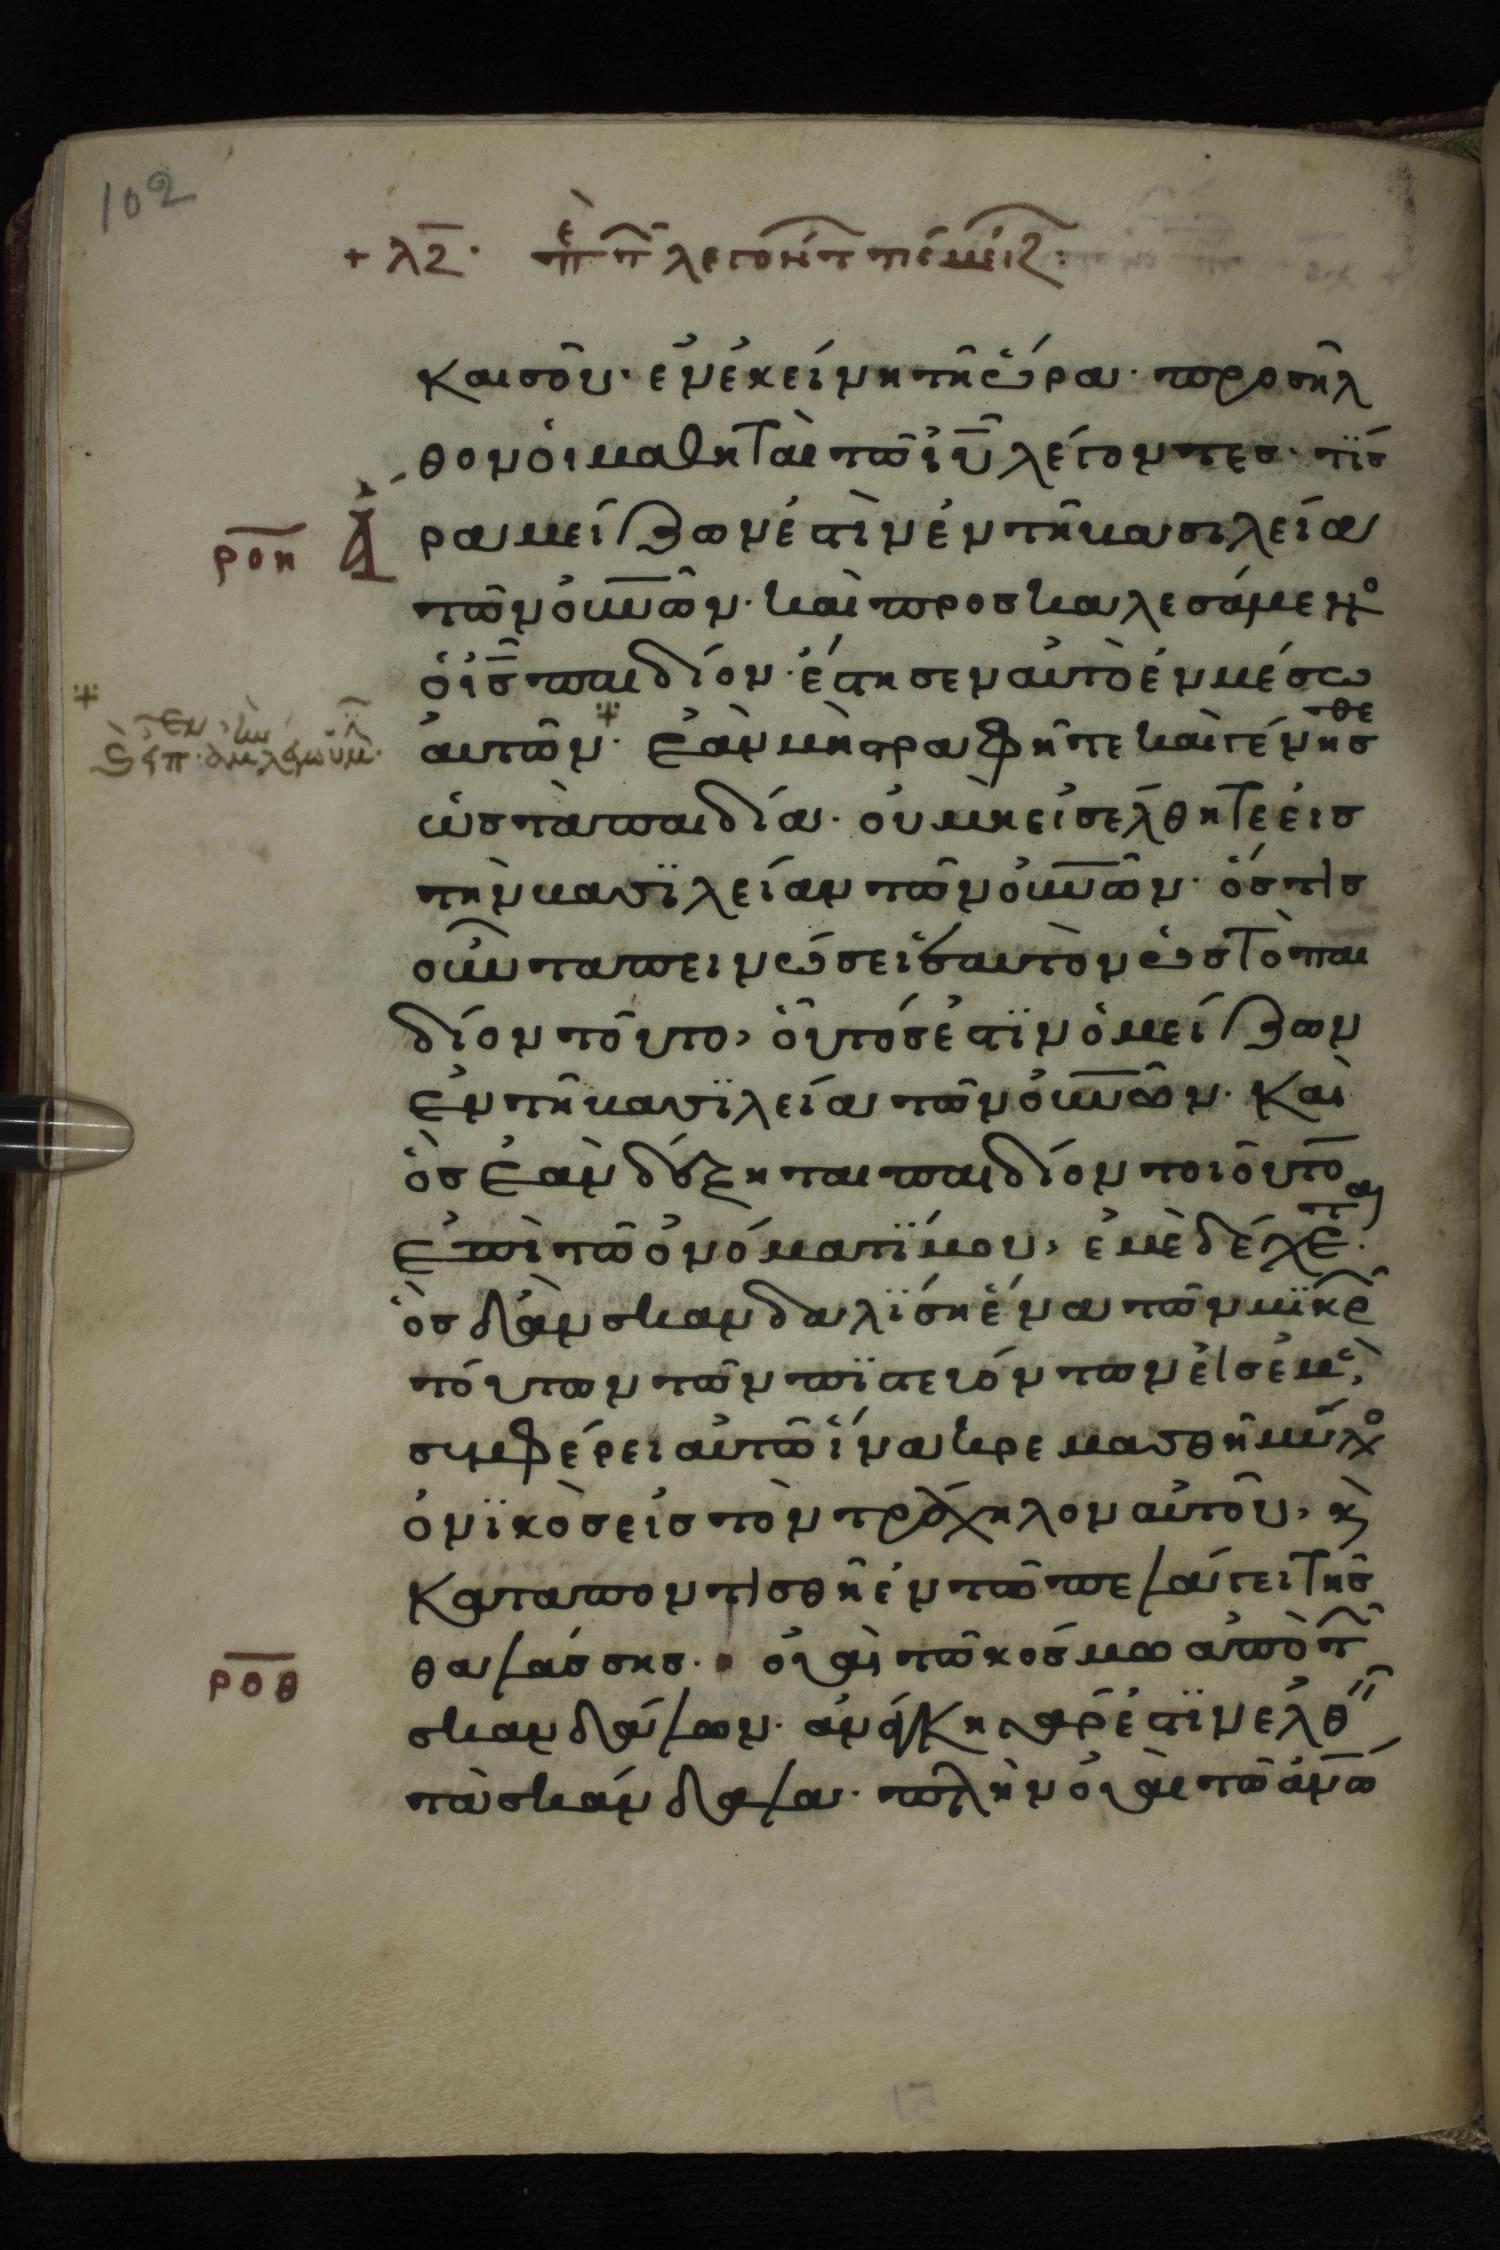 102
+ λζ· πε π λεγόντ τίς μείζ:
και σοῦ· ἐν ἐκείνη τῆ ὥρα· προσῆλ
θον οἱ μαθηταὶ τῶ ἰῦ λέγοντες· τίσ
ροη ἄ
ρα μείζων ἐστὶν ἐν τῆ βασιλεία
τῶν οὐνῶν· καὶ προσκαλεσάμενο
ὁ ἰσ παιδίον· ἔστησεν αὐτὸ ἐν μέσω
αὐτῶν· καὶ εἶπεν ἀμὴν λέγω ὑμῖν·
ἐὰν μὴ στραφῆτε καὶ γένησθε
ὡσ τὰ παιδία· οὐ μὴ εἰσέλθητε εἰσ
τὴν βασϊλείαν τῶν οὐνῶν· ὅστισ
οὖν ταπεινώσει ἑαυτὸν ὡσ τὸ παι
δίον τοῦτο, οὗτόσ ἐστϊν ὁ μείζων
ἐν τῆ βασϊλεία τῶν οὐνῶν· καὶ
ὃσ ἐὰν δέξηται παιδίον τοιοῦτο
ἐπὶ τῶ ὀνόματΐ μου, ἐμὲ δέχεται·
ὃσ δ' ἂν σκανδαλΐση ἕνα τῶν μϊκρ
τούτων τῶν πϊστευόντων εἰσ ἐμέ,
συμφέρει αὐτῶ ἵνα κρεμασθῆ μύλο
ὀνϊκὸσ εἰσ τὸν τράχηλον αὐτοῦ, κ
καταποντισθῆ ἐν τῶ πελάγει τῆσ
ροθ
θαλάσσησ· οὐαὶ τῶ κόσμω ἀπὸ τ
σκανδάλων· ἀνάγκη γάρ ἐστϊν ἐλθ
τὰ σκάνδαλα· πλὴν οὐαὶ τῶ ἀνω
51